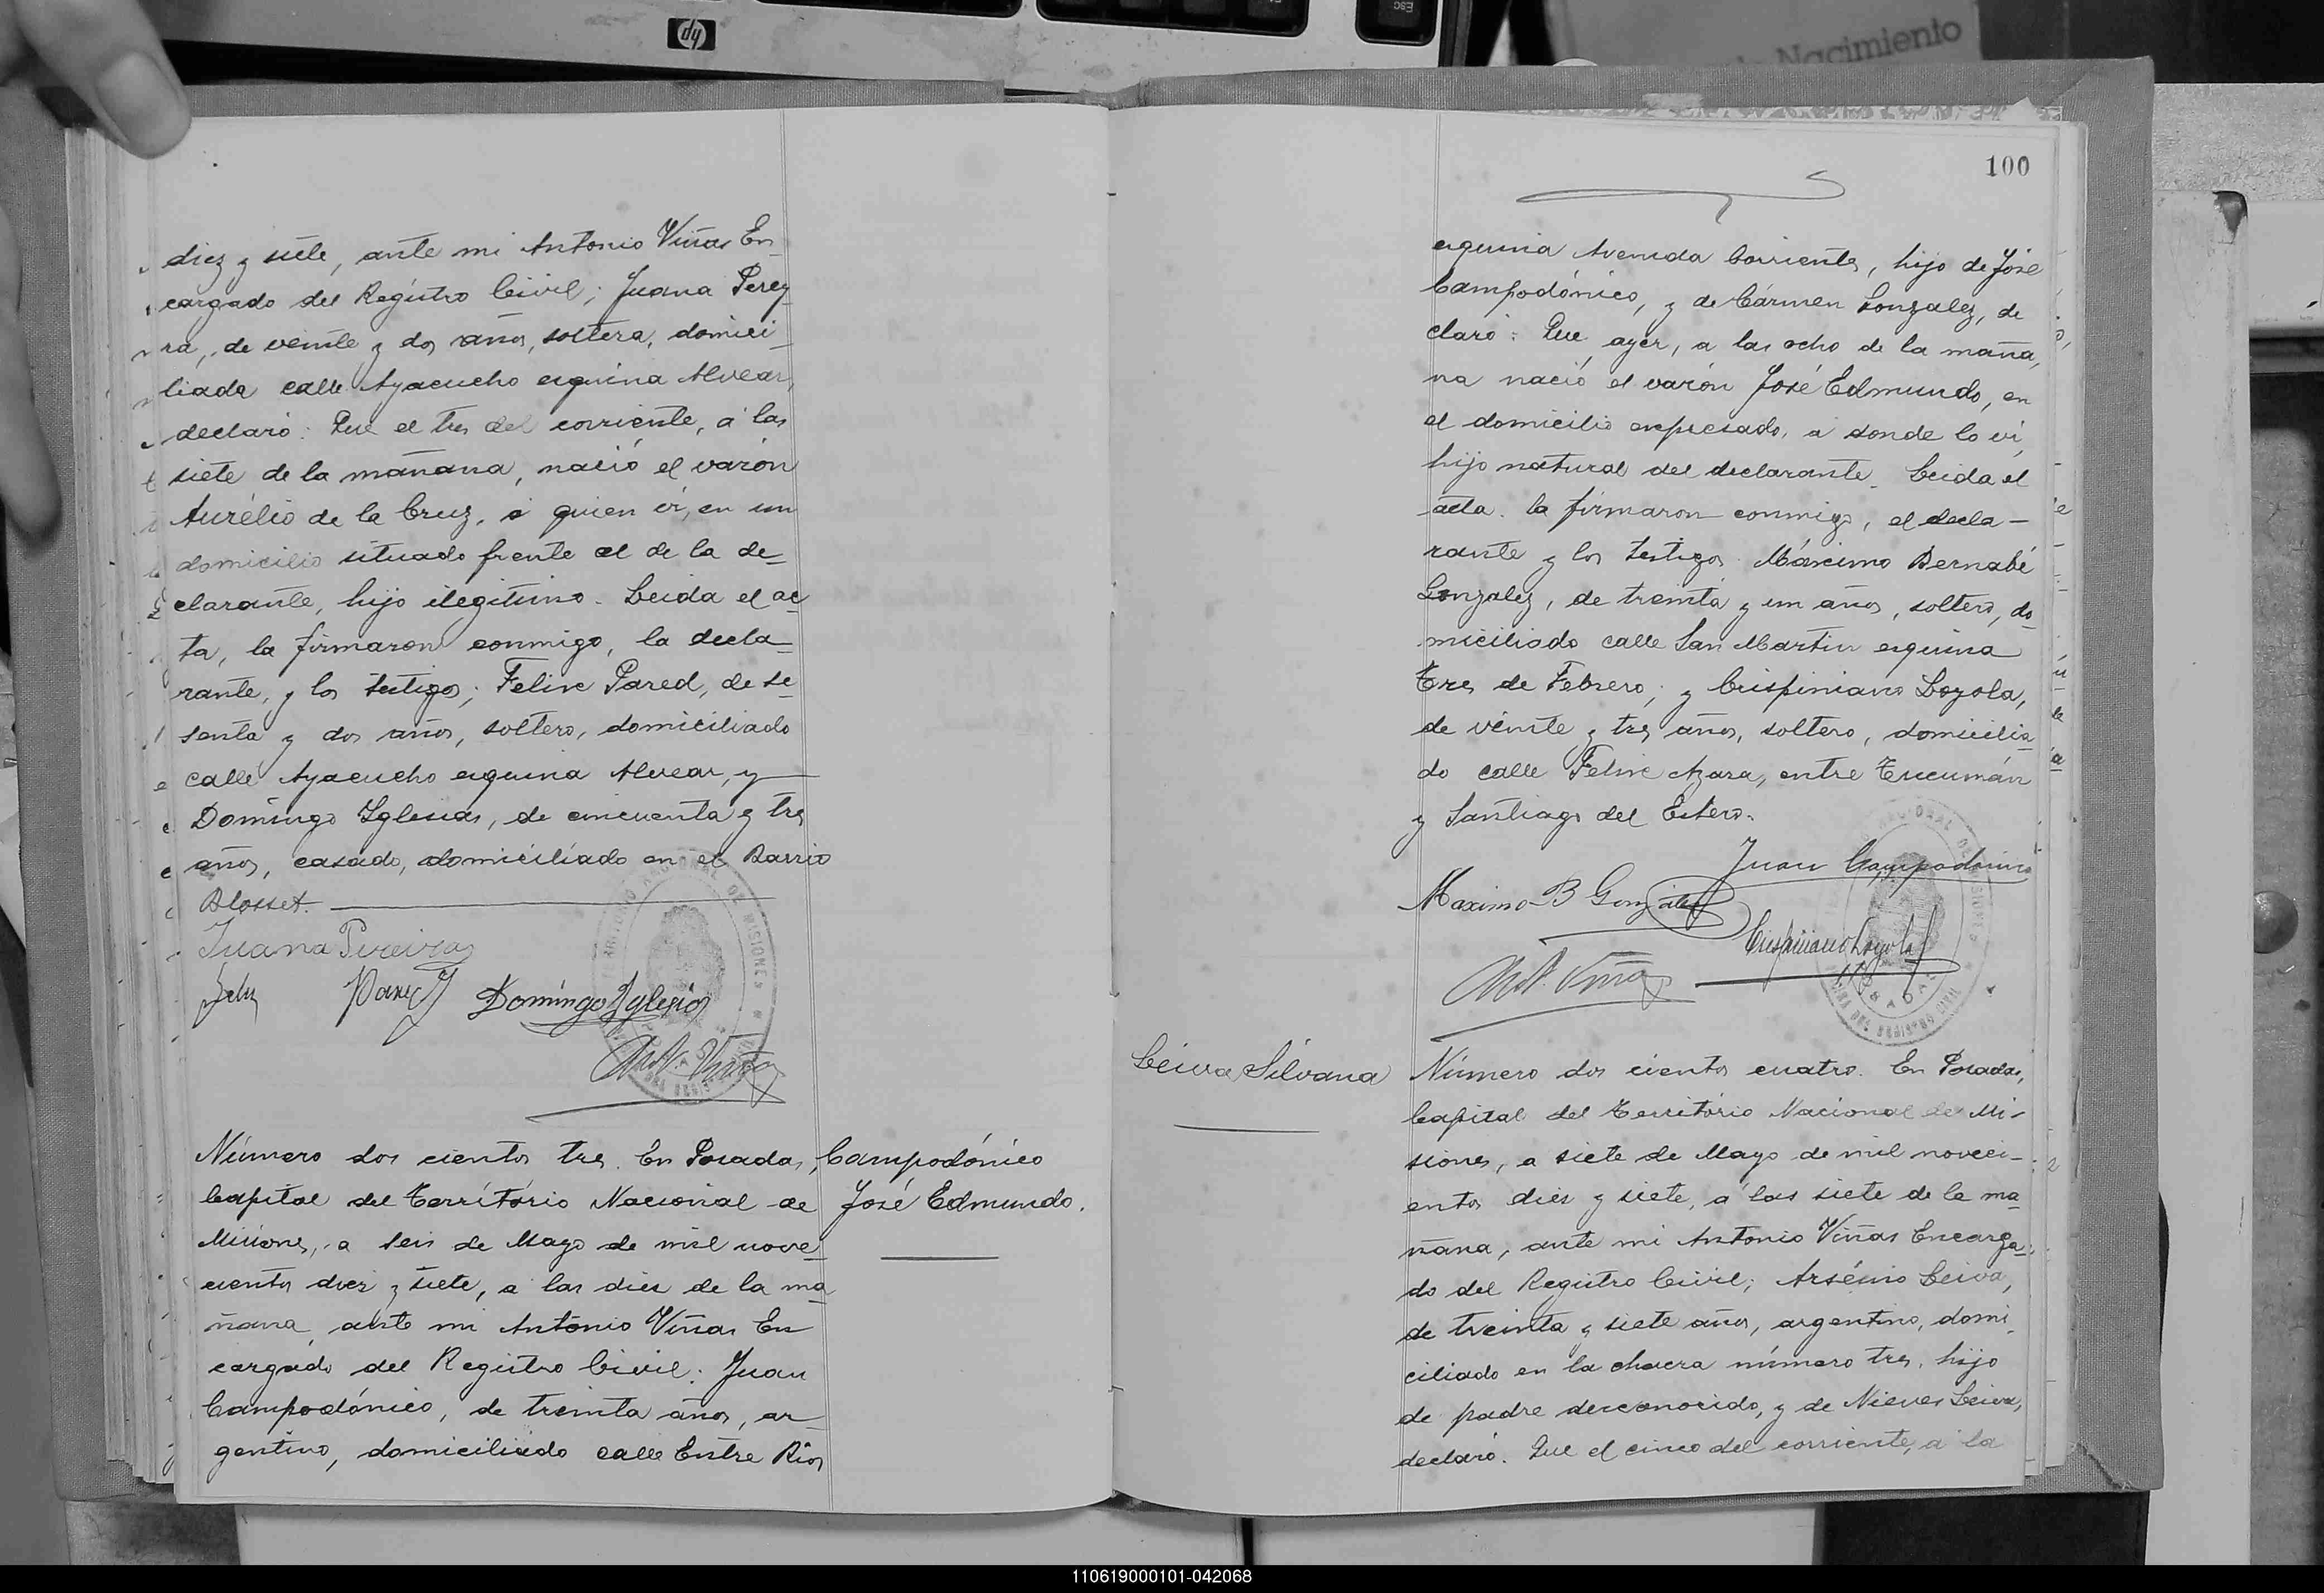 ESC
hp
de Nacimiento
diez y siete, ante mi Antonio Viñas En_
cargado del Registro Civil; Juana Perey_
ra, de veinte y dos años, soltera, domici_
liada calle Ayacucho esquina Alvear,
declaró: Que el tres del corriente, á las
siete de la mañana, nació el varón
Aurélio de la Cruz, a quien ví, en un
domicilio situado frente al de la de_
clarante, hijo ilegítimo. Leida el ac_
ta, la firmaron conmigo, la decla_
rante, y los testigos; Felix Pared, de se_
senta y dos años, soltero, domiciliado
calle Ayacucho esquina Alvear, y
Domingo Yglesias, de cincuenta y tres
años, casado, domiciliado en el Barrio
Blosset.
Juana Pereira
Felix Pared Domingo Yglesias
Ant. Viñas
TERRITORIO NACIONAL DE MISIONES
Número dos cientos tres. En Posadas,
Capital del Território Nacional de
Misiones, a seis de Mayo de mil nove_
cientos diez y siete, a las diez de la ma_
ñana, ante mi Antonio Viñas En
cargado del Registro Civil: Juan
Campodónico, de treinta años, ar_
gentino, domiciliado calle Entre Rios
Campodónico
José Edmundo.
100
esquina Avenida Corrientes, hijo de José
Campodónico, y de Cármen Gonzalez, de
claró: Que ayer, a las ocho de la maña,
na nació el varón José Edmundo, en
el domicilio expresado, a donde lo ví,
hijo natural del declarante. Leida el
acta. la firmaron conmigo, el decla-
rante y los testigos Máximo Bernabé
Gonzalez, de treinta y un años, soltero, do_
miciliado calle San Martin esquina
Tres de Febrero; y Crispiniano Loyola,
de veinte y tres años, soltero, domicilia_
do calle Felix Azara, entre Tucumán
y Santiago del Estero.
Juan Campodonico
Maximo B Gonzalez
Crispiniano Loyola
Ant. Viñas
Leiva, Silvana
Número dos cientos cuatro. En Posadas,
Capital del Território Nacional de Mi-
siones, a siete de Mayo de mil noveci_
entos diez y siete, a las siete de la ma_
ñana, ante mi Antonio Viñas Encarga_
do del Registro Civil; Arsénio Leiva,
de treinta y siete años, argentino, domi_
ciliado en la chacra número tres, hijo
de padre desconocido, y de Nieves Leiva,
declaró. Que el cinco del corriente, a la
110619000101-042068